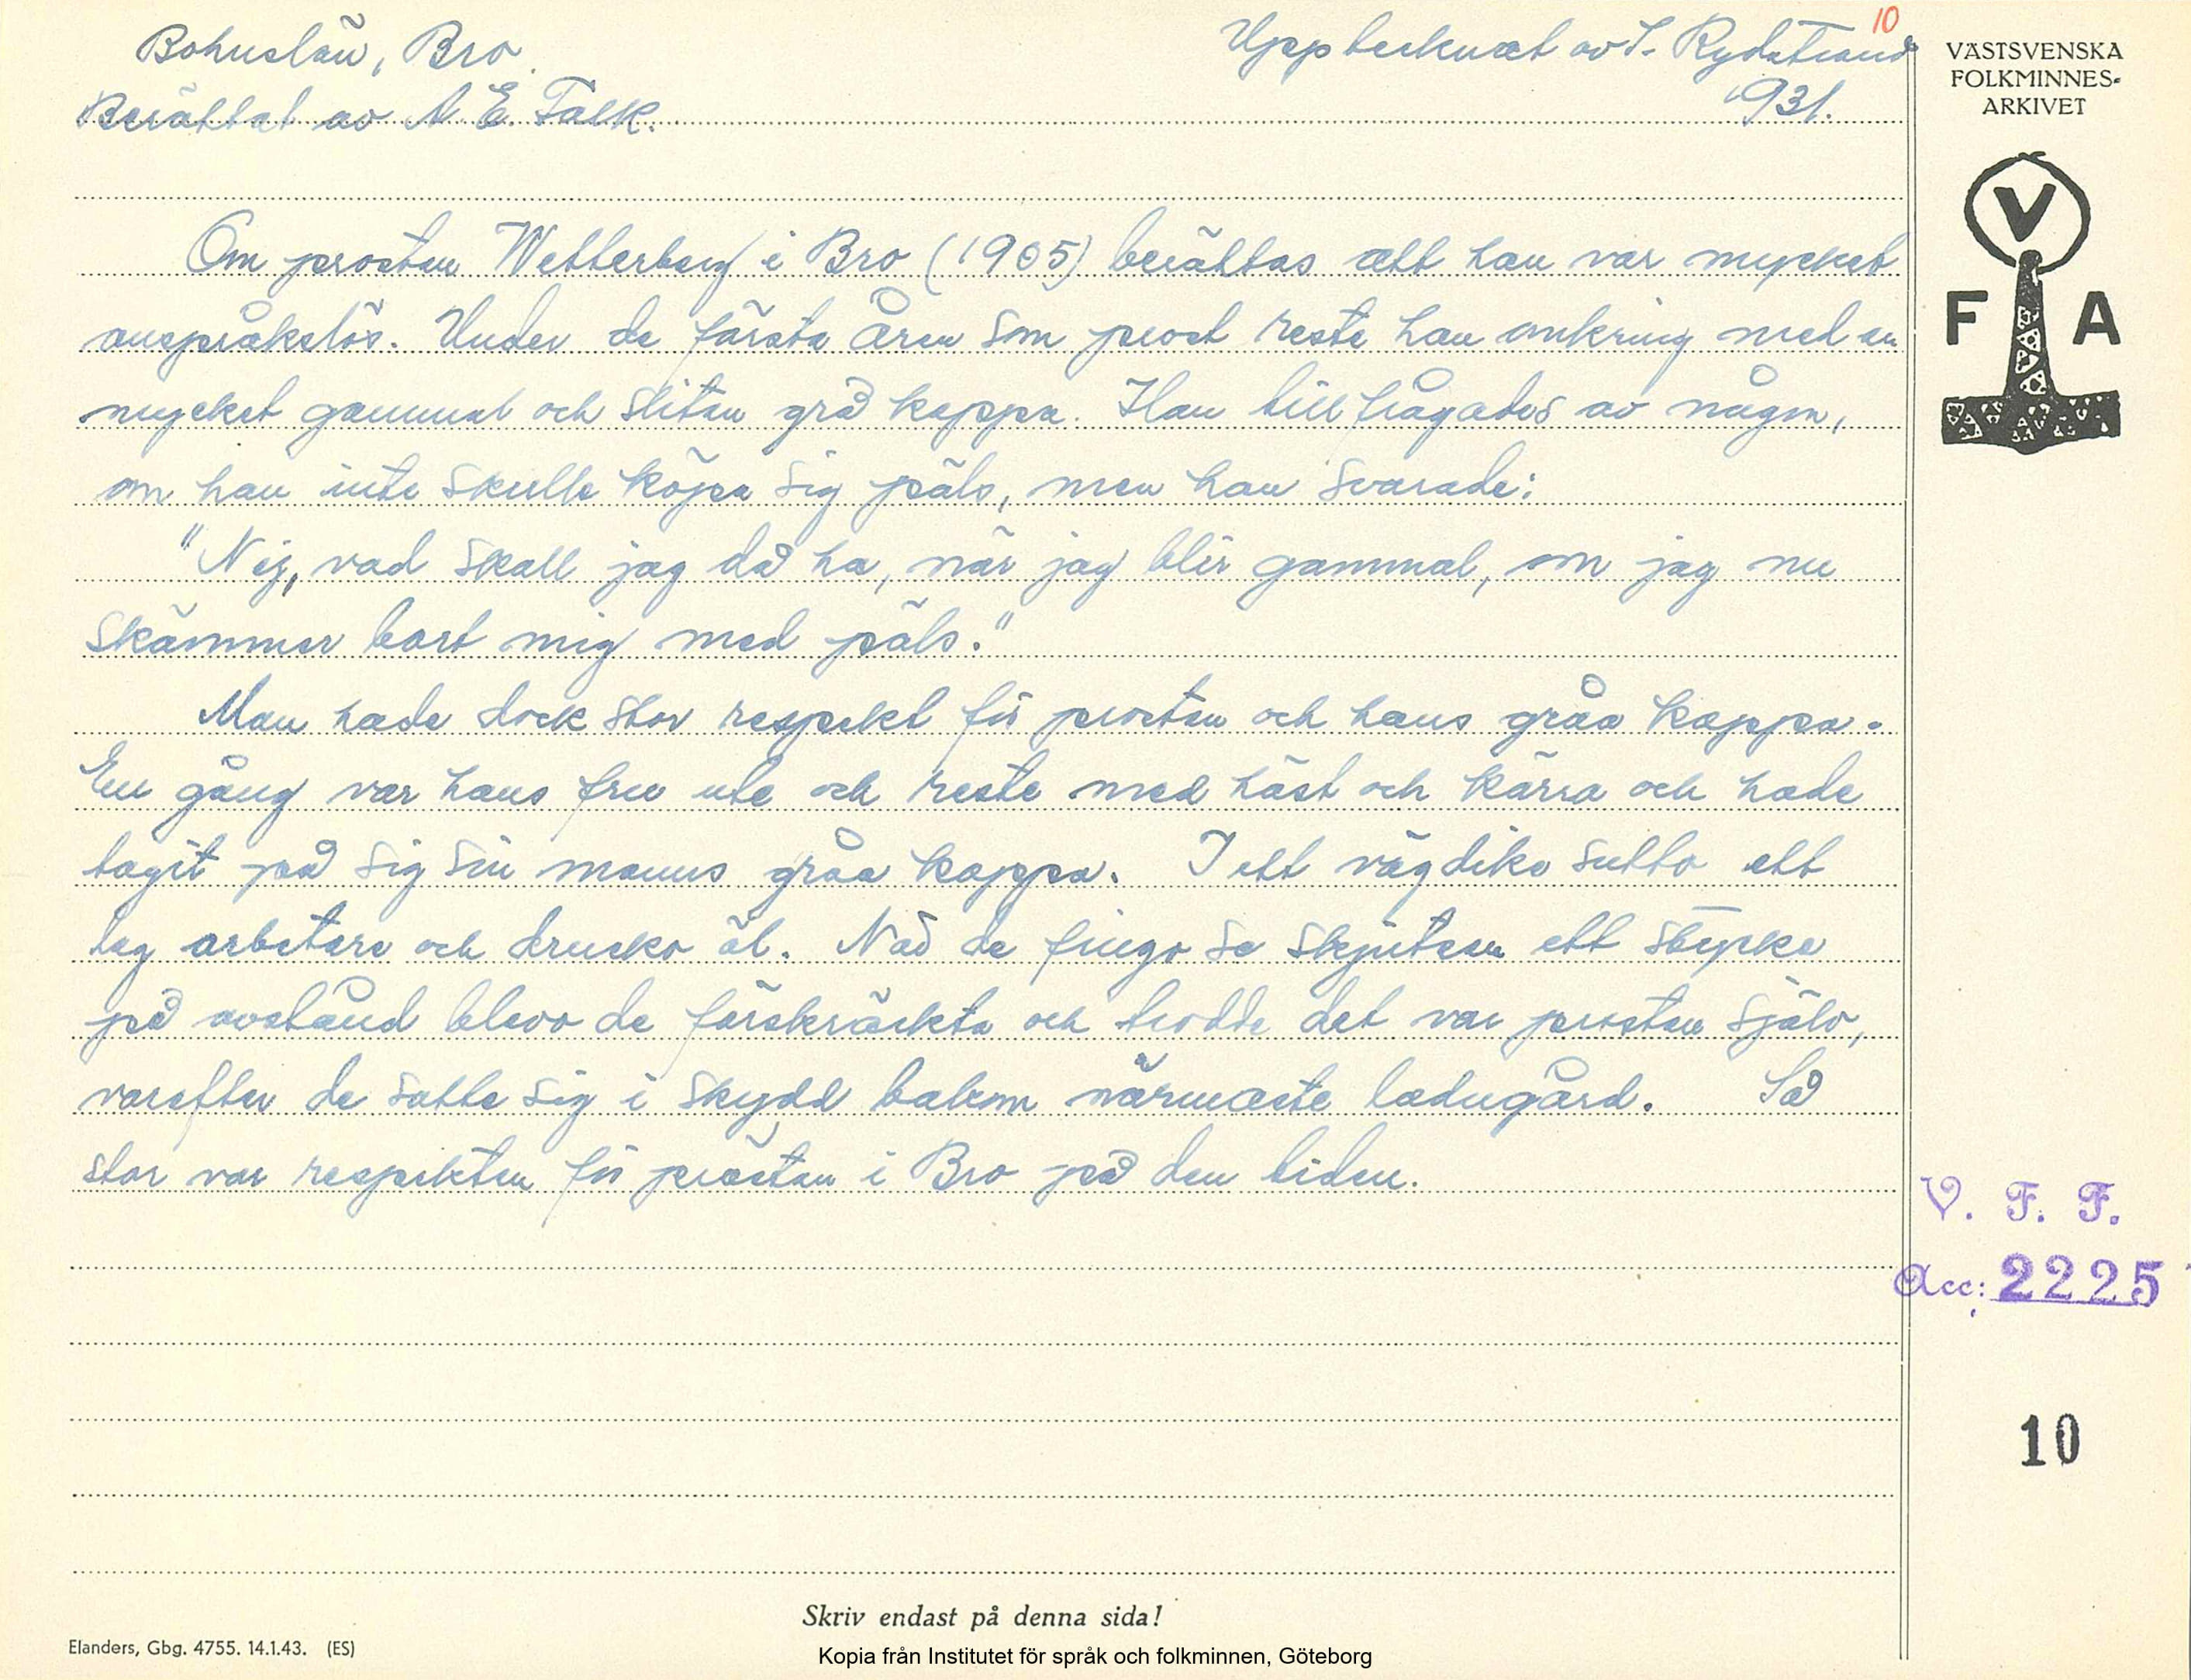 10
Bohuslän, Bro.
Upptecknat av S. Rydstrand
Berättat av A. E. Falk.
1931.
Om prosten Wetterberg i Bro (1905) berättas att han var mycket
anspråkslös. Under de första åren som prost reste han omkring med en
mycket gammal och sliten grå kappa. Han tillfrågades av någon,
om han inte skulle köpa sig päls, men han svarade:
"Nej, vad skall jag då ha, när jag blir gammal, om jag nu
skämmer bort mig med päls."
Man hade dock stor respekt för prosten och hans gråa kappa.
En gång var hans fru ute och reste med häst och kärra och hade
tagit på sig sin manns gråa kappa. I ett vägdike sutto ett
lag arbetare och drucko öl. När de fingo se skjutsen ett stycke
på avstånd blevo de förskräckta och trodde det var prosten själv,
varefter de satte sig i skydd bakom närmaste ladugård. Så
stor var respekten för prästen i Bro på den tiden.
VÄSTSVENSKA
FOLKMINNES-
ARKIVET
V
F A
V. F. F.
Acc: 2225
10
Skriv endast på denna sida!
Elanders, Gbg. 4755. 14.1.43. (ES)
Kopia från Institutet för språk och folkminnen, Göteborg